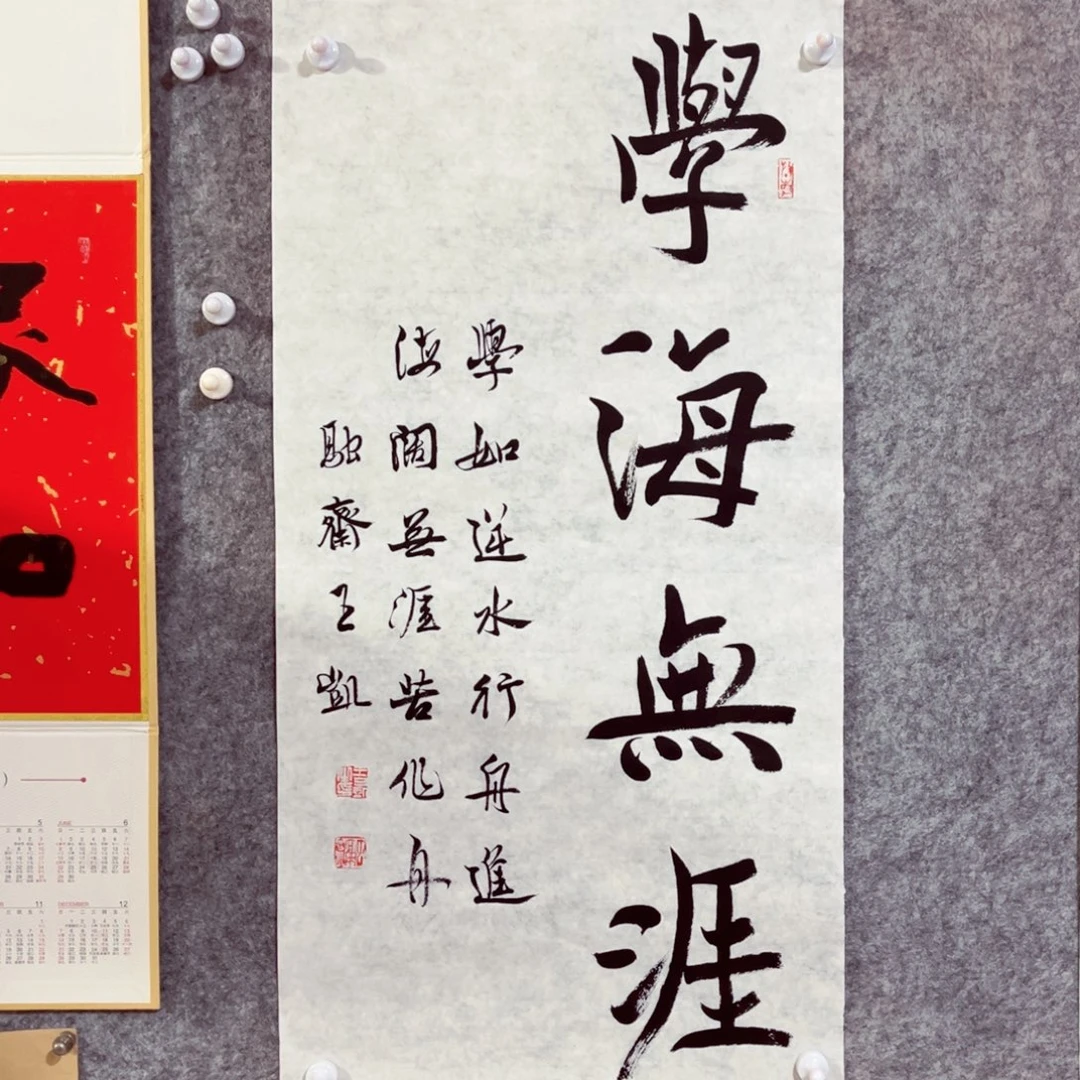 學海無涯
學如逆水行舟進
海闊無涯苦作舟
融齋王凱
JUNE
5
6
DECEMBER
11
12